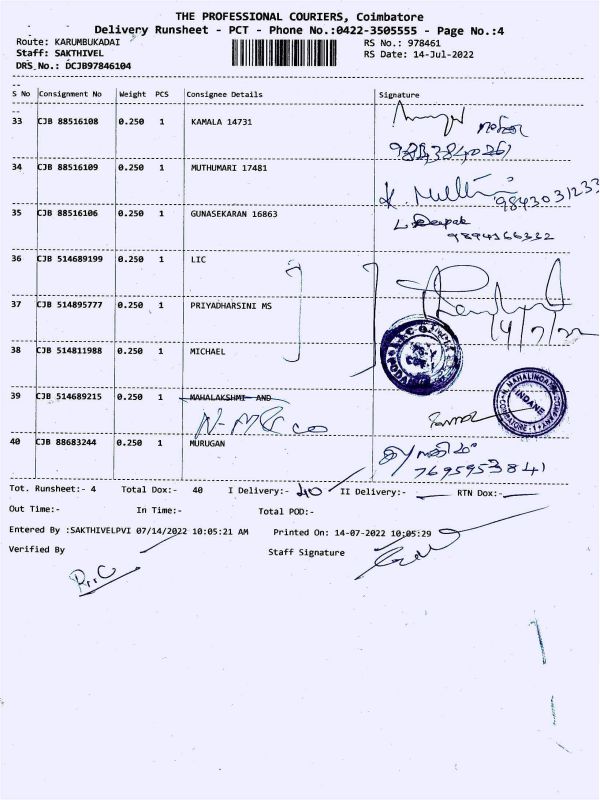 THE PROFESSIONAL COURIERS, Coimbatore
Delivery Runsheet - PCT - Phone No.:0422-3505555 - Page No.:4
Route: KARUMBUKADAI RS No.: 978461
Staff: SAKTHIVEL RS Date: 14-Jul-2022
DRS_No.: DCJB97846104
S No Consignment No Weight PCS Consignee Details Signature
33 CJB 88516108 0.250 1 KAMALA 14731
34 CJB 88516109 0.250 1 MUTHUMARI 17481
9843031233
35 CJB 88516106 0.250 1 GUNASEKARAN 16863 L. Deepak
9894366332
36 CJB 514689199 0.250 1 LIC
37 CJB 514895777 0.250 1 PRIYADHARSINI MS
14/7/22
38 CJB 514811988 0.250 1 MICHAEL
39 CJB 514689215 0.250 1 MAHALAKSHMI AND
INDANE
40 CJB 88683244 0.250 1 MURUGAN
7695953841
Tot. Runsheet:- 4 Total Dox:- 40 I Delivery:- 40 II Delivery:- RTN Dox:-
Out Time:- In Time:- Total POD:-
Entered By :SAKTHIVELPVI 07/14/2022 10:05:21 AM Printed On: 14-07-2022 10:05:29
Verified By Staff Signature